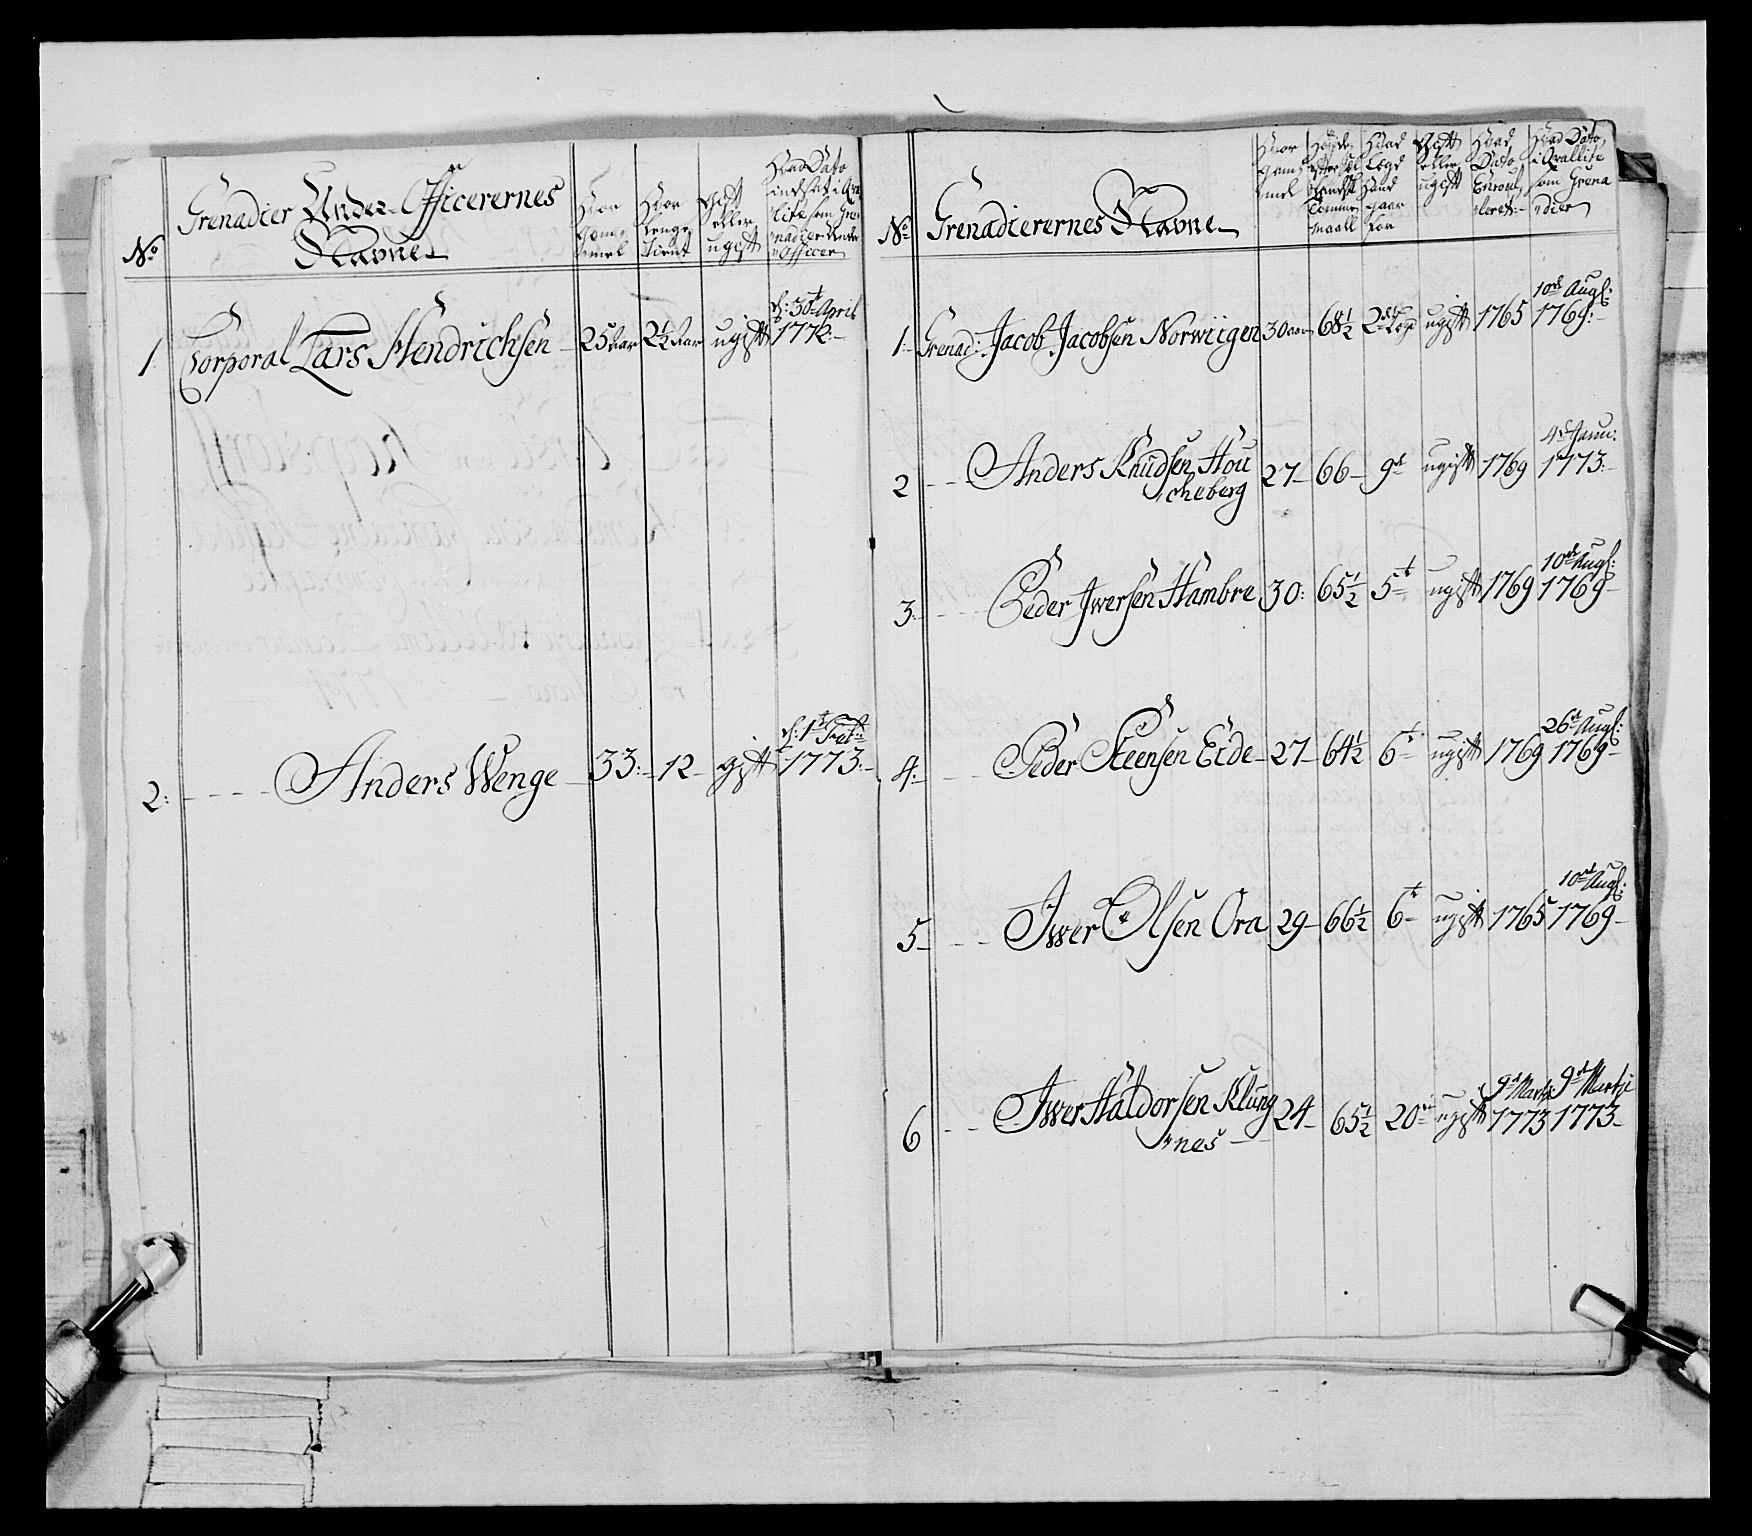 No
Grenadier Under-Officerernes
Navne
Hvor
gam-
mel
Hvor
lenge
tient
gift
eller
ugift
Hvad Dato
indsat i Qva
lite som Gre
nadier Under
Officer
1. Corporal Lars Hendrichsen 25 aar 2½ aar ugift d: 30t April 1772.
2. Anders Wenge 33. 12 gift d: 1t Feb: 1773.
No
Grenadierernes Navne
Hvor
gam-
mel
Hvad
Lægd
Hand
staar
for
Gift
eller
ugift
Hvad
Dato
Enroul
leret
Hvad Dato
i Qvallite
som Grena
dier
1. Grenad: Jacob Jacobsen Norwiigen 30 aar 68½ 2den Lægd ugift 1765 10de Aug: 1769.
2 Anders Knudsen Hou 27 66 9de ugift 1769 4de Janu: 1773.
cheberg
3. Peder Iwersen Hambre 30. 65½ 5t ugift 1769 10de Aug: 1769
4. Peder Steensen Eide 27 64½ 6t ugift 1769 26de Aug: 1769
5 Iwer Olsen Ora 29 66½ 6t ugift 1765 10de Aug: 1769
6 Iwer Haldorsen Klung 24 65½ 20de ugift 9de Martji 1773 9de Martji 1773
nes